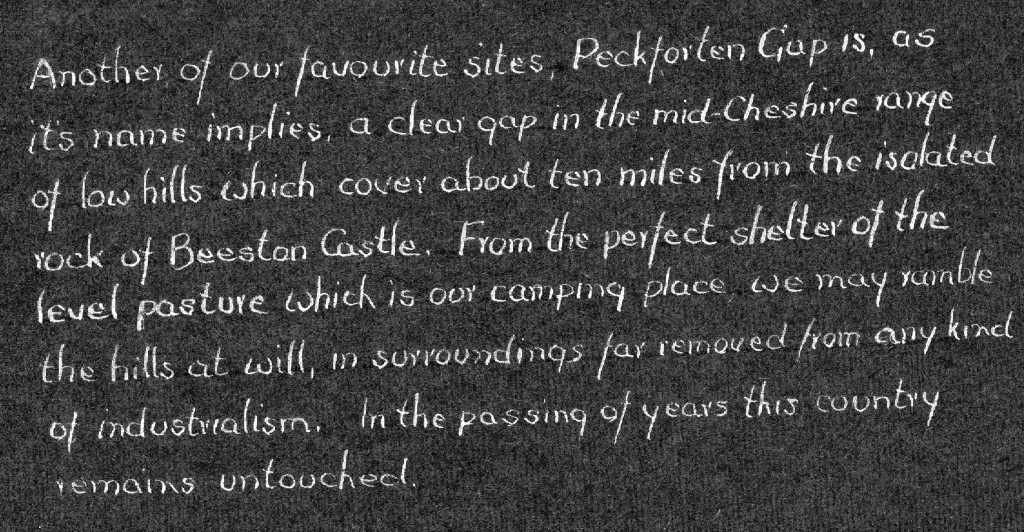 Another of our favourite sites, Peckforten Gap is, as
it's name implies, a clear gap in the mid-Cheshire range
of low hills which cover about ten miles from the isolated
rock of Beeston Castle. From the perfect shelter of the
level pasture which is our camping place, we may ramble
the hills at will, in surroundings far removed from any kind
of industrialism. In the passing of years this country
remains untouched.